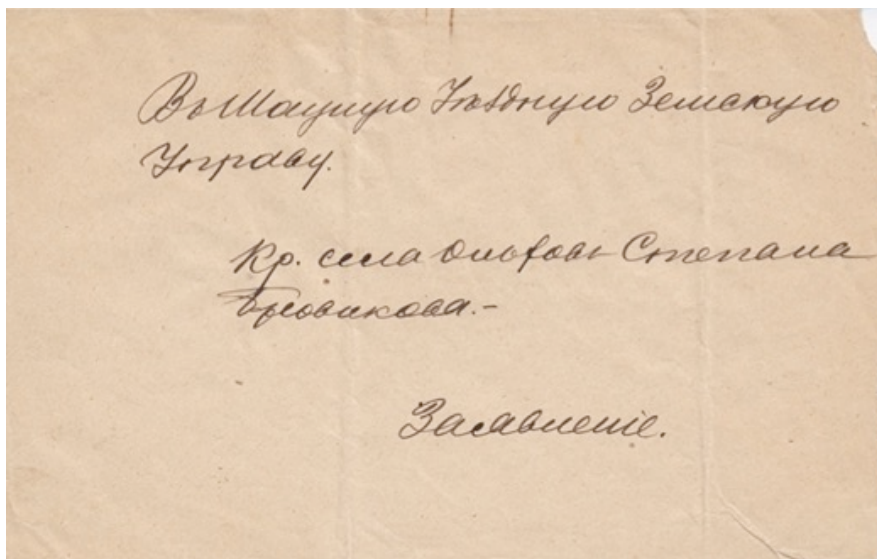 Въ Шацкую Уѣздную Земскую
Управу.
Кр. села Ольхова Степана
Заявленіе.